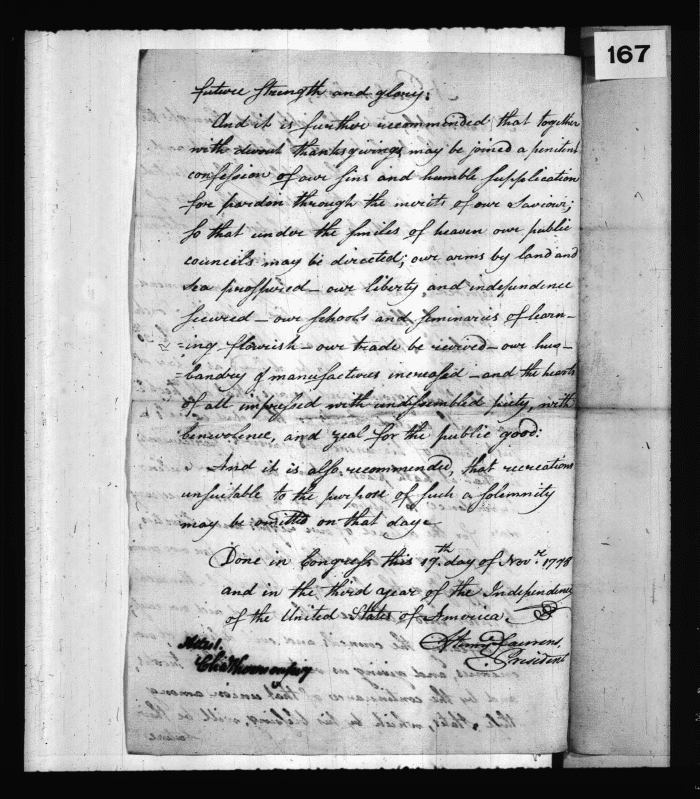 167
future strength and glory;
And it is further recommended, that together
with devout thanksgivings may be joined a penitent
confession of our sins and humble supplication
for pardon through the merits of our Saviour;
so that under the smiles of heaven our public
councils may be directed; our arms by land and
sea prospered — our liberty and independence
secured — our schools and seminaries of learn-
=ing flourish — our trade be revived — our hus-
=bandry & manufactures increased — and the hearts
of all impressed with undissembled piety, with
benevolence, and zeal for the public good:
And it is also recommended, that recreations
unsuitable to the purpose of such a solemnity
may be omitted on that day
Done in Congress this 17th day of Novr. 1778
and in the third year of the Independence
of the United States of America
Henry Laurens,
President
Attest.
Chas Thomson secy